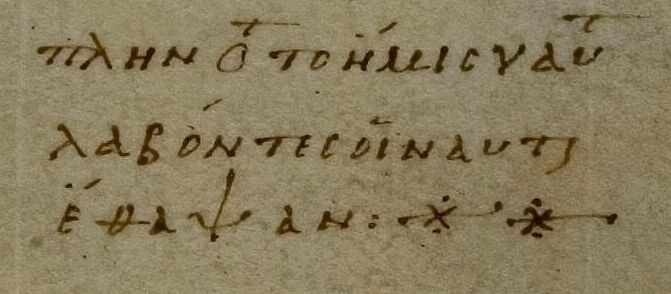 πλην ὅτ το ἥμισυ αυτ
λαβόντες οἱ ναυτ
ἔθαψαν: ※ ※